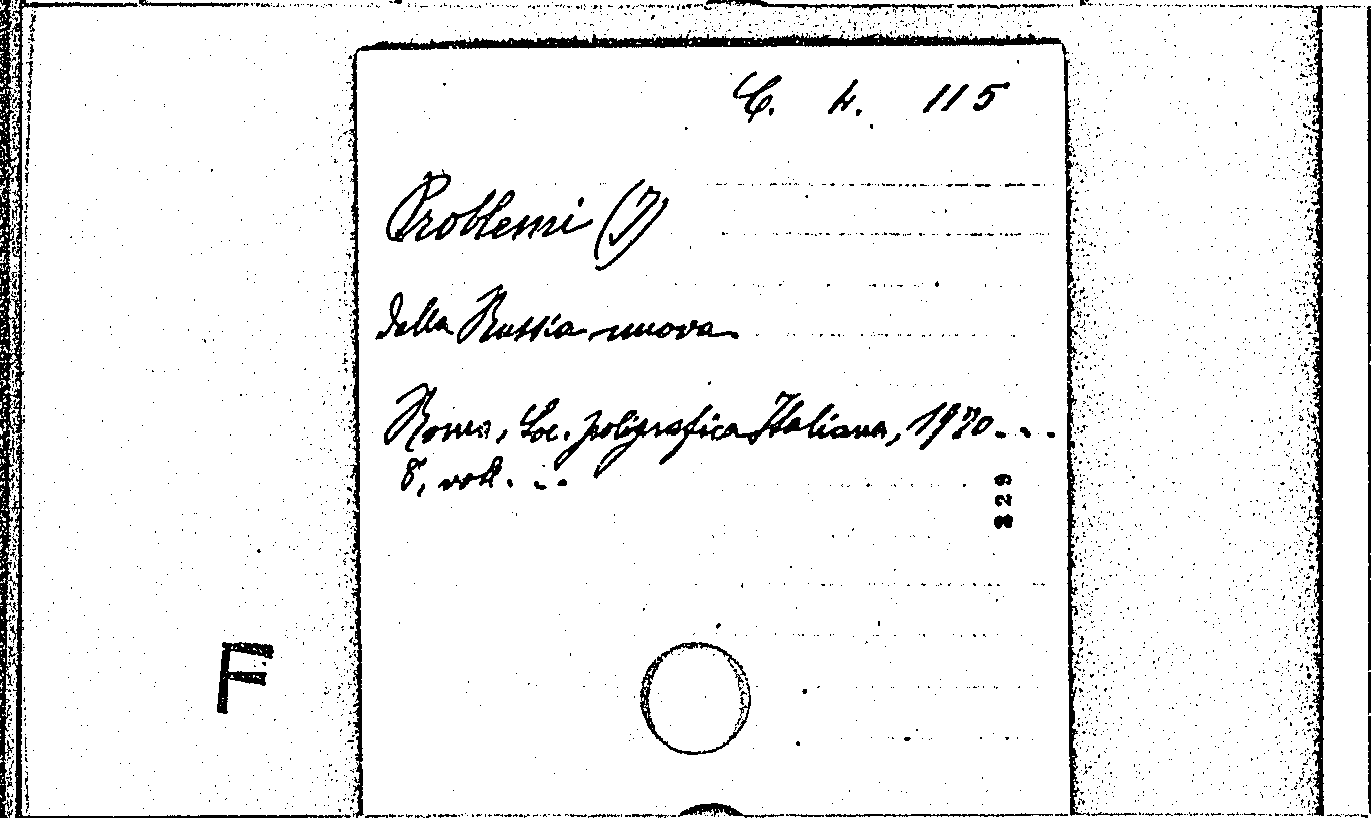 C. 4. 115
Problemi (I)
della Russia nuova
Roma, Soc. poligrafica Italiana, 1920...
8, voll. ...
329
F